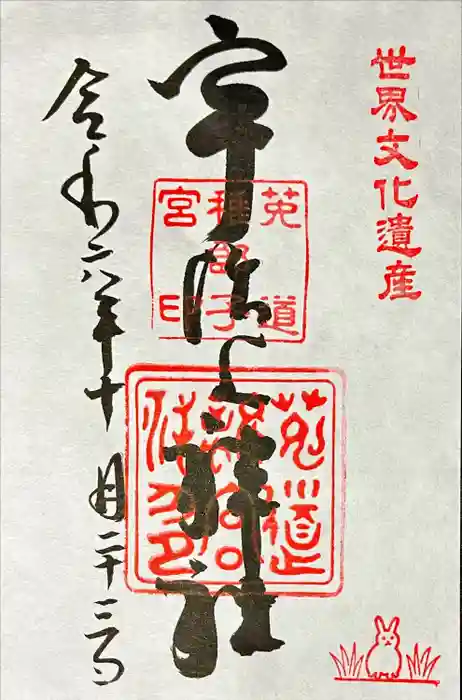 世界文化遺産
宇治上神社
菟道
稚郎子
宮印
菟道
令和六年十月二十三日